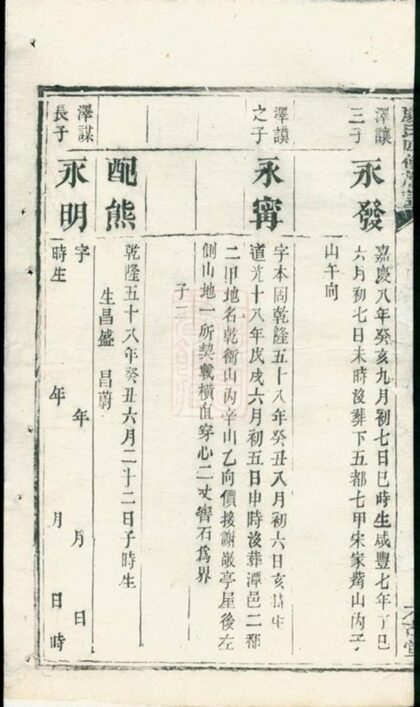 澤讓三子
永發
嘉慶八年癸亥九月初七日巳時生咸豐七年丁巳
六月初七日未時沒葬下五都七甲宋家觜山丙子
山午向
澤謨之子
永甯
字本固乾隆五十八年癸丑八月初六日亥時生
道光十八年戊戌六月初五日申時沒葬潭邑二都
二甲地名乾衝山內辛山乙向價接謝敬亭屋後左
側山地一所契載橫直穿心二丈磬石為界
子二
配熊
乾隆五十八年癸丑六月二十二日子時生
生昌盛 昌蔚
澤謀長子
永明
字 年 月 日
時生 年 月 日時